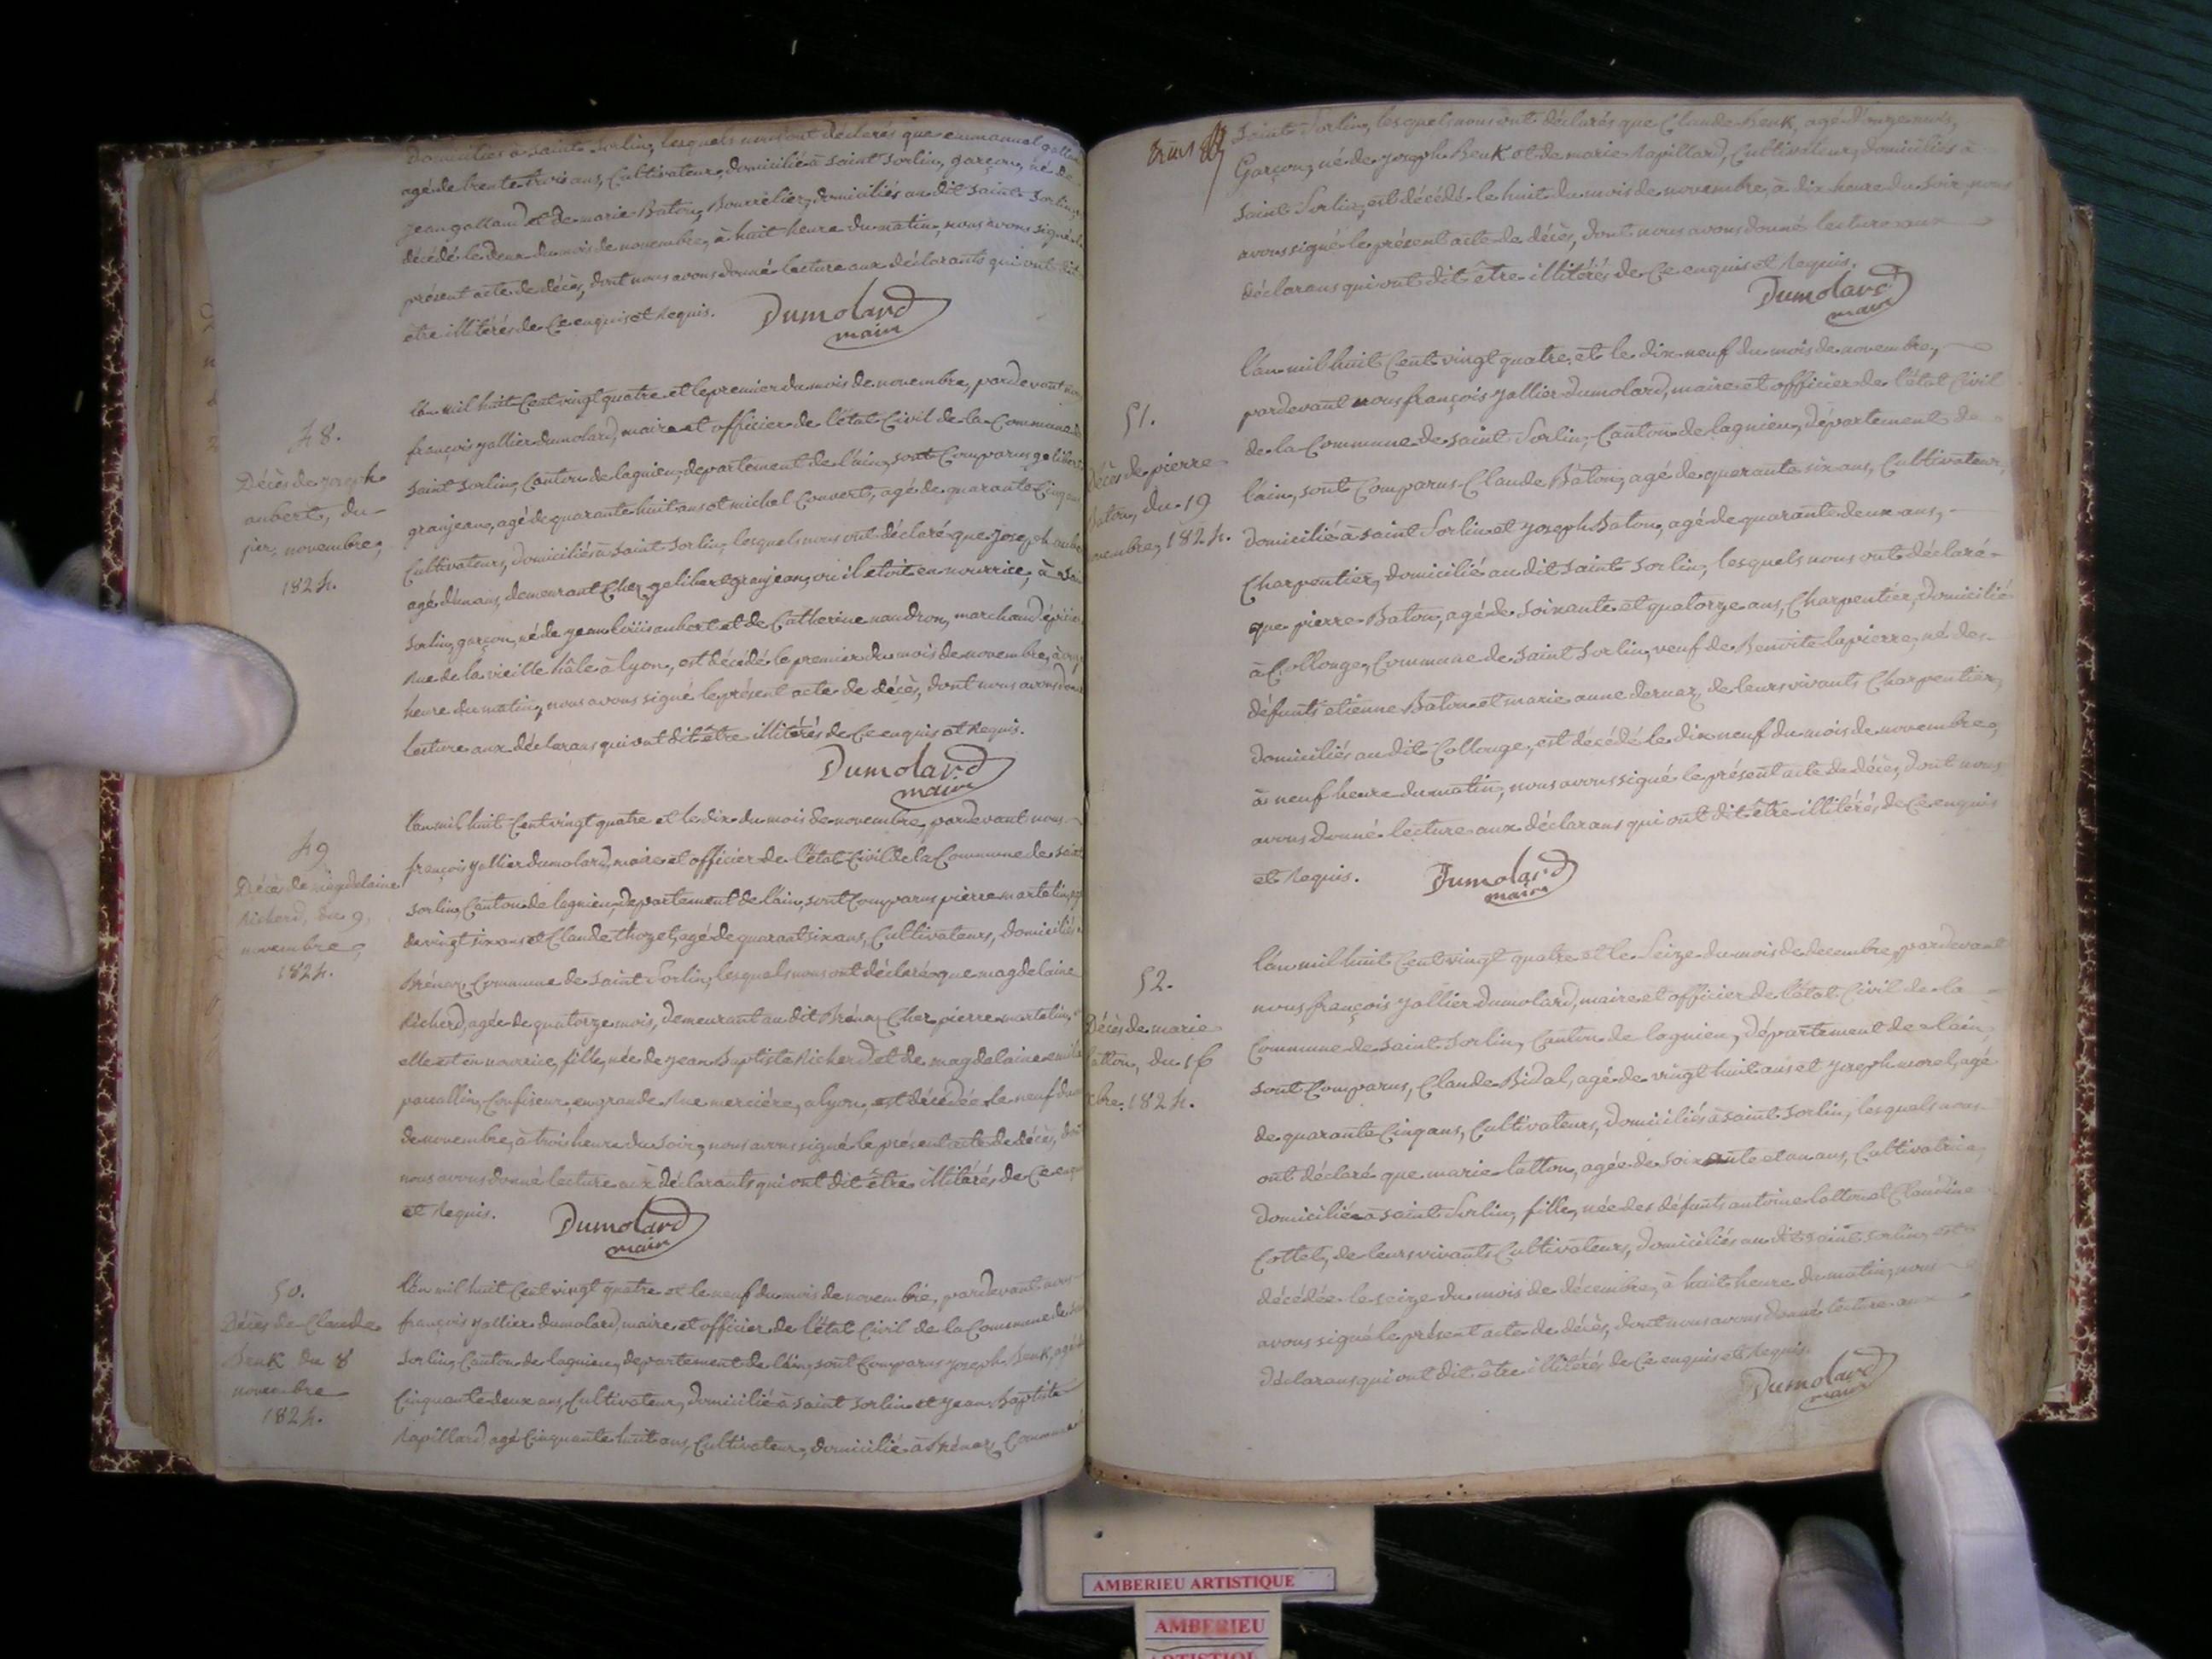 domiciliés à Saint Sorlin, lesquels nous ont déclarés que emmanuel
agé de trente trois ans, Cultivateur, domicilié à Saint Sorlin, garçon, né de
jean galland et de marie Baton, Bourrelier, domiciliés au dit Saint Sorlin,
décédé le deux du mois de novembre, à huit heure du matin, nous avons signé
présent acte de décès, dont nous avons donné lecture aux déclarants qui ont dit
être illitérés de Ce enquis et Requis.
Dumolard
maire
48.
Décès de joseph
aubert, du
1ier. novembre,
1824.
l'an mil huit Cent vingt quatre et le premier du mois de novembre, pardevant
françois jallier dumolard, maire et officier de l'état Civil de la Commune
Saint Sorlin, Canton de lagnieu, département de l'ain, sont Comparus gelibert
granjean, agé de quarante huit ans et michel Convert, agé de quarante Cinq
Cultivateurs, domiciliés à Saint Sorlin, lesquels nous ont déclaré que joseph
agé d'un ans, demeurant Chez gelibert granjean, ou il etoit en nourrice, à
Sorlin, garçon, né de jean loüis aubert et de Catherine naudron, marchand
Rue de la vieille hâle à lyon, est décédé le premier du mois de novembre,
heure du matin, nous avons signé le présent acte de décès, dont nous avons
lecture aux déclarans qui ont dit être illitérés de Ce enquis et Requis.
Dumolard
maire
49
Décès de magdelaine
Richerd, du 9
novembre,
1824.
l'an mil huit Cent vingt quatre et le dix du mois de novembre, pardevant nous
françois jallier dumolard, maire et officier de l'état Civil de la Commune de Saint
Sorlin, Canton de lagnieu, département de l'ain, sont Comparus pierre martelin,
de vingt six ans et Claude thozet, agé de quarant six ans, Cultivateurs, domiciliés
Brénaz, Commune de Saint Sorlin, lesquels nous ont déclaré que magdelaine
Richerd, agée de quatorze mois, demeurant au dit Brénaz, Chez pierre martelin,
elle est en nourrice, fille, née de jean Baptiste Richerd et de magdelaine
Confiseur, en grande Rue mercière, a lyon, est décédée le neuf du
de novembre, à trois heure du Soir, nous avons signé le présent acte de décès,
nous avons donné lecture aux déclarants qui ont dit être illitérés de Ce
et Requis.
Dumolard
maire
50.
Décès de Claude
Benk du 8
novembre
1824.
l'an mil huit Cent vingt quatre et le neuf du mois de novembre, pardevant nous
françois jallier dumolard, maire et officier de l'état Civil de la Commune de
Sorlin, Canton de lagnieu, département de l'ain, sont Comparus joseph Benk, agé
Cinquante deux ans, Cultivateur, domicilié à Saint Sorlin et jean Baptiste
Rapillard, agé Cinquante huit ans, Cultivateur, domicilié à Brénaz, Commune
Saint Sorlin, lesquels nous ont déclarés que Claude Benk, agé d'onze mois,
Garçon, né de joseph Benk et de marie Rapillard, Cultivateur, domiciliés à
Saint Sorlin, est décédé le huit du mois de novembre, à dix heure du Soir, nous
avons signé le présent acte de décès, dont nous avons donné lecture aux
déclarans qui ont dit être illitérés de Ce enquis et Requis.
Dumolard
maire
51.
Décès de pierre
Baton, du 19
novembre, 1824.
l'an mil huit Cent vingt quatre, et le dix neuf du mois de novembre,
pardevant nous françois jallier dumolard, maire et officier de l'état Civil
de la Commune de Saint Sorlin, Canton de lagnieu, département de
l'ain, sont Comparus Claude Bâton, agé de quarante six ans, Cultivateur,
domicilié à Saint Sorlin et joseph Baton, agé de quarante deux ans,
Charpentier, domicilié au dit Saint Sorlin, lesquels nous ont déclaré
que pierre Baton, agé de Soixante et quatorze ans, Charpentier, domicilié
à Collonge, Commune de Saint Sorlin, veuf de Benoite lapierre, né des
défunts etienne Baton et marie anne dernaz, de leurs vivants Charpentier,
domiciliés au dit Collonge, est décédé le dix neuf du mois de novembre,
à neuf heure du matin, nous avons signé le présent acte de décès, dont nous
avons donné lecture aux déclarans qui ont dit être illitérés, de Ce enquis
et Requis.
Dumolard
maire
52.
Décès de marie
latton, du 16
xbre. 1824.
l'an mil huit Cent vingt quatre et le Seize du mois de decembre, pardevant
nous françois jallier dumolard, maire et officier de l'état Civil de la
Commune de Saint Sorlin, Canton de lagnieu, département de l'ain,
sont Comparus, Claude Bidal, agé de vingt huit ans et joseph morel, agé
de quarante Cinq ans, Cultivateurs, domiciliés à Saint Sorlin, lesquels nous
ont déclaré que marie latton, agée de Soixante et un ans, Cultivatrice,
domiciliée à Saint Sorlin, fille, née des défunts antoine latton et Claudine
Cottet, de leurs vivants Cultivateurs, domiciliés au dit Saint Sorlin, est
décédée le seize du mois de décembre, à huit heure du matin, nous
avons signé le présent acte de décès, dont nous avons donné lecture aux
déclarans qui ont dit être illitérés de Ce enquis et Requis.
Dumolard
maire
AMBERIEU ARTISTIQUE
AMBERIEU
ARTISTIQUE